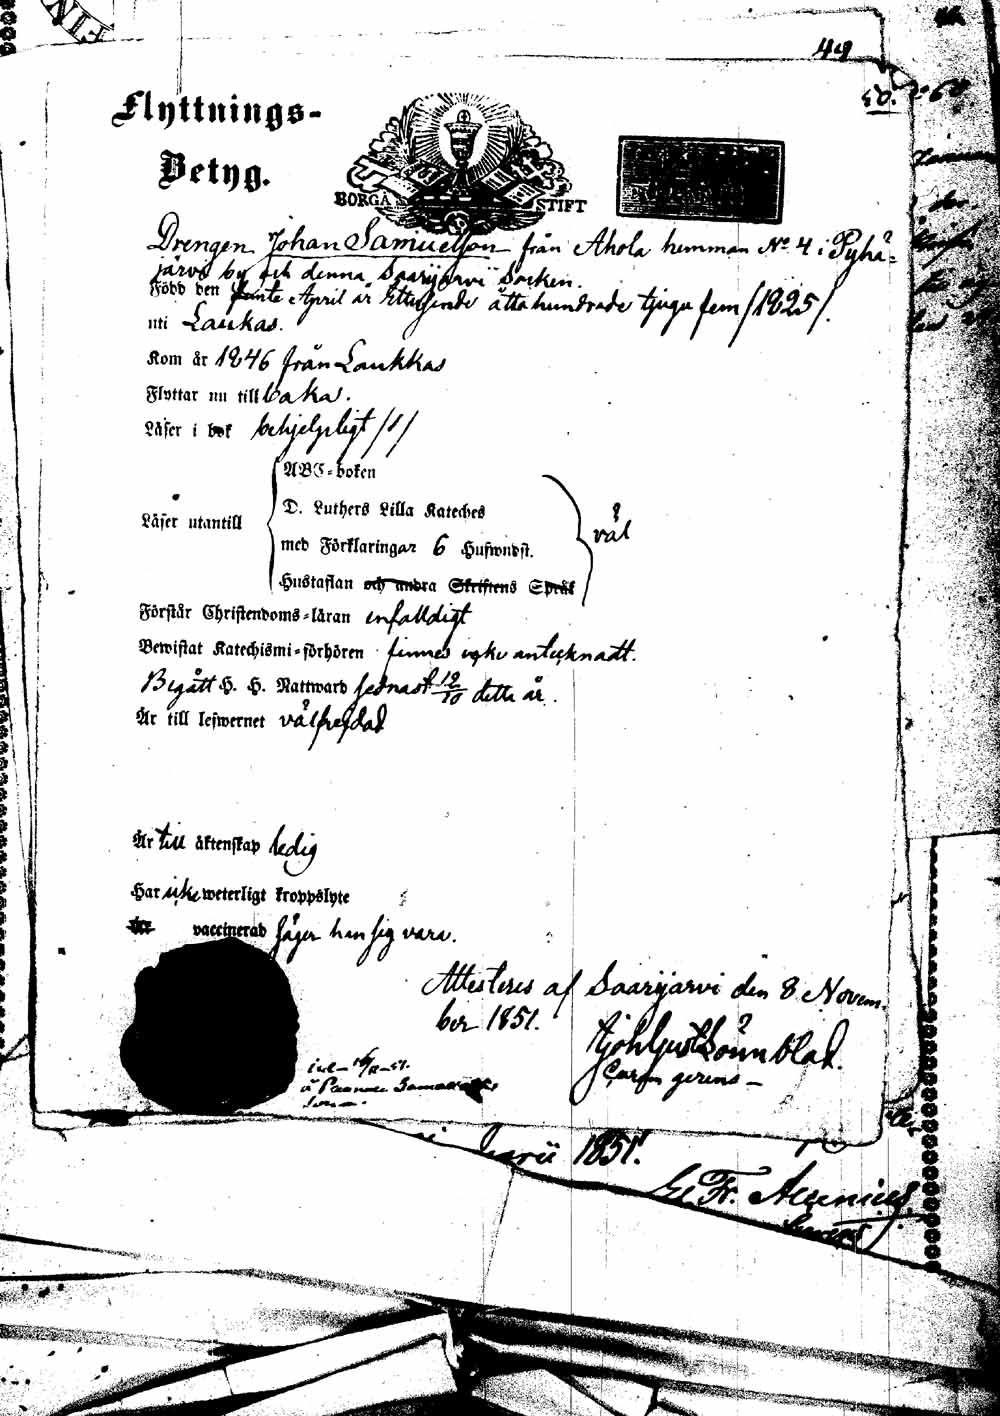 44
50.
Flyttnings-
Betyg.
BORGÅ STIFT
Drengen Johan Samuelson från Ahola hemman No 4 i Pyhä-
järvi by och denna Saarijärvi Socken.
Född den femte April år Ettusende åttahundrade tjugu fem /1825/.
uti Laukas.
Kom år 1846 från Laukkas
Flyttar nu tillbaka.
Läser i bok behjelpligt /1/
ABC-boken
Läser utantill
D. Luthers Lilla Kateches
med Förklaringar 6 Hufwudst.
väl
Hustaflan och andra Skriftens Språk
Förstår Christendoms-läran enfaldigt
Bewistat Katechismi-förhören finnes icke antecknadt.
Begått H. H. Nattward sednast 12/10 detta år.
Är till lefwernet välfrejdad
Är till äktenskap ledig
Har icke weterligt kroppslyte
vaccinerad säger han sig vara.
Attesteres af Saarijärvi den 8 Novem-
ber 1851.
Lönnblad.
gerens
1851.